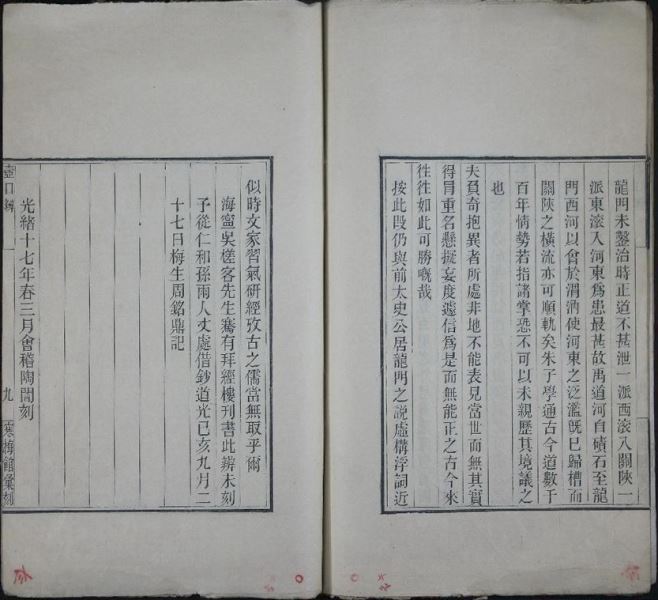 龍門未鑿治時正道不甚泄一派西滾入關陝一
派東滾入河東為患最甚故禹道河自磧石至龍
門西河以會於渭汭使河東之泛濫既已歸槽而
關陝之橫流亦可順軌矣朱子學通古今道數于
百年情勢若指諸掌恐不可以未親歷其境議之
也
夫負奇抱異者所處非地不能表見當世而無其實
得冒重名懸擬妄度遽信為是而無能正之古今來
往往如此可勝嘅哉
按此段仍與前太史公居龍門之說虛構浮詞近
似時文家習氣研經攷古之儒當無取乎爾
海寧吳槎客先生騫有拜經樓刊書此辨未刻
予從仁和孫雨人丈處借鈔道光己亥九月二
十七日梅生周銘鼎記
光緒十七年春三月會稽陶誾刻
壺口辨
九
寒梅館彙刻